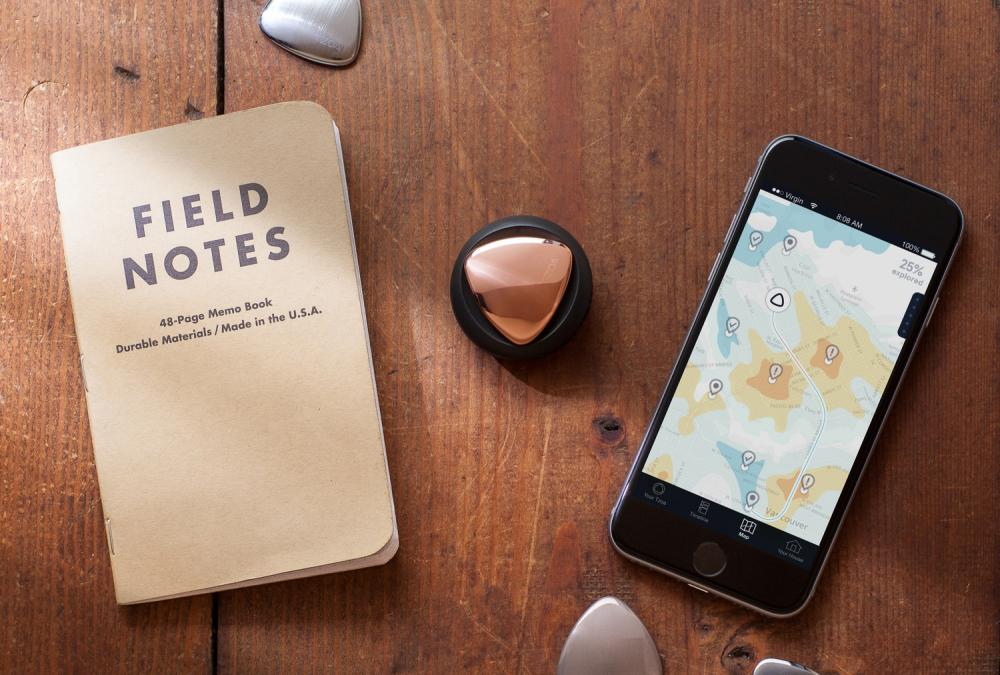 FIELD
NOTES
48-Page Memo Book
Durable Materials / Made in the U.S.A.
Virgin
8:08 AM
100%
25%
explored
Vancouver
Timeline
Map
Your House